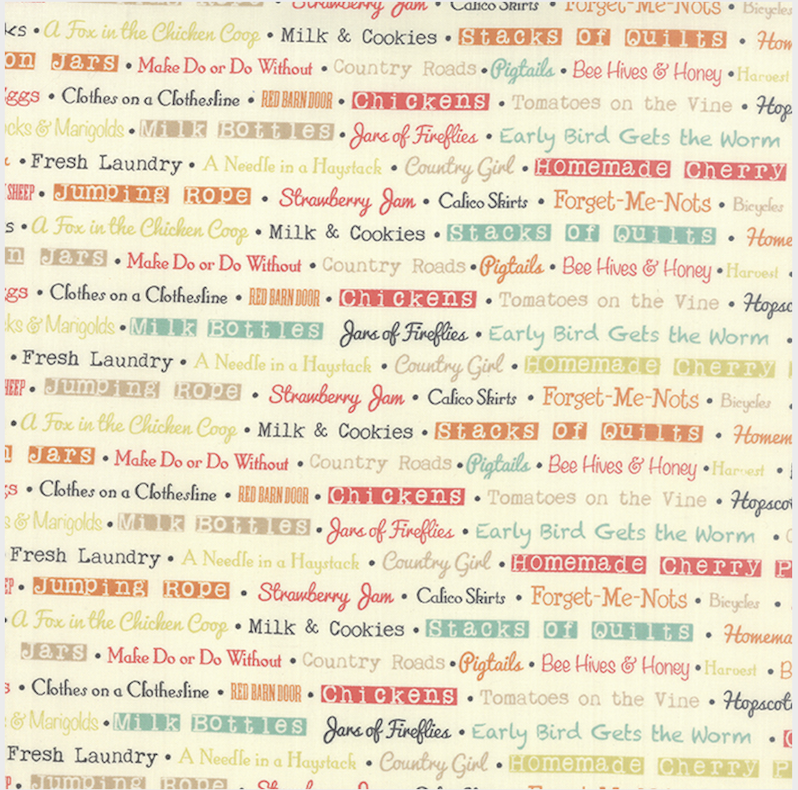 Strawberry Jam • Calico Skirts • Forget-Me-Nots • Bicycles
• A Fox in the Chicken Coop • Milk & Cookies • Stacks Of Quilts •
Jars • Make Do or Do Without • Country Roads • Pigtails • Bee Hives & Honey • Harvest
• Clothes on a Clothesline • RED BARN DOOR • Chickens • Tomatoes on the Vine •
& Marigolds • Milk Bottles • Jars of Fireflies • Early Bird Gets the Worm
• Fresh Laundry • A Needle in a Haystack • Country Girl • Homemade Cherry
SHEEP • Jumping Rope • Strawberry Jam • Calico Skirts • Forget-Me-Nots • Bicycles
• A Fox in the Chicken Coop • Milk & Cookies • Stacks Of Quilts • Home
Jars • Make Do or Do Without • Country Roads • Pigtails • Bee Hives & Honey • Harvest •
• Clothes on a Clothesline • RED BARN DOOR • Chickens • Tomatoes on the Vine • Hopsc
& Marigolds • Milk Bottles Jars of Fireflies • Early Bird Gets the Worm
• Fresh Laundry • A Needle in a Haystack • Country Girl • Homemade Cherry
• Jumping Rope • Strawberry Jam • Calico Skirts • Forget-Me-Nots • Bicycles
• A Fox in the Chicken Coop • Milk & Cookies • Stacks Of Quilts • Homem
Jars • Make Do or Do Without • Country Roads • Pigtails • Bee Hives & Honey • Harvest •
• Clothes on a Clothesline • RED BARN DOOR • Chickens • Tomatoes on the Vine • Hopsco
& Marigolds • Milk Bottles • Jars of Fireflies • Early Bird Gets the Worm •
Fresh Laundry • A Needle in a Haystack • Country Girl • Homemade Cherry P
• Jumping Rope • Strawberry Jam • Calico Skirts • Forget-Me-Nots • Bicycles •
• A Fox in the Chicken Coop • Milk & Cookies • Stacks Of Quilts • Homema
Jars • Make Do or Do Without • Country Roads • Pigtails • Bee Hives & Honey • Harvest • B
• Clothes on a Clothesline • RED BARN DOOR • Chickens • Tomatoes on the Vine • Hopscot
& Marigolds • Milk Bottles Jars of Fireflies • Early Bird Gets the Worm •
Fresh Laundry • A Needle in a Haystack • Country Girl • Homemade Cherry P
• Jumping Rope